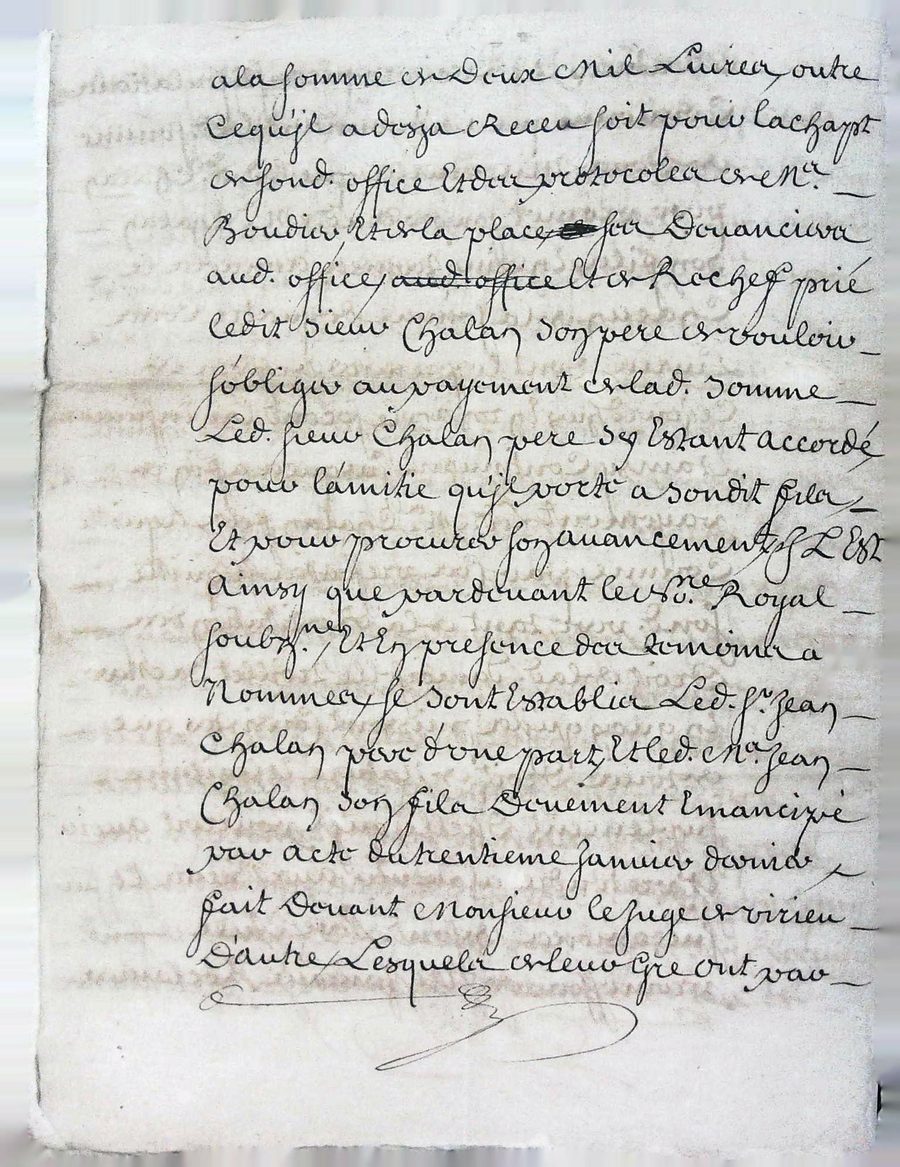 a la somme de Deux Mil Livres, outre
Cequ'jl a desja Receu soit pour lachapt
de sond. office Et des protocoles de Mr. —
Boudier, Et de la place ses Devanciers
aud. office, aud. office Et de Rochef prié
ledit Sieur Chalan Son pere de vouloir —
s'obliger au payement de lad. Somme —
Led. sieur Chalan pere Sy Estant accordé,
pour lámitie qu'jl porte a Sondit fils, —
Et pour procurer son avancement, jL Est
Ainsy que pardevant le No.re Royal —
soubz.né, Et En presence des temoins a
Nommer, se Sont Establis Led. Sr. Jean —
Chalan pere d'une part, Et led. Me. Jean —
Chalan Son fils Deuement Emancipé
par acte du trentieme Janvier dernier,
fait Devant Monsieur le Juge de virieu —
D'autre, Lesquels de leur Gre ont par —